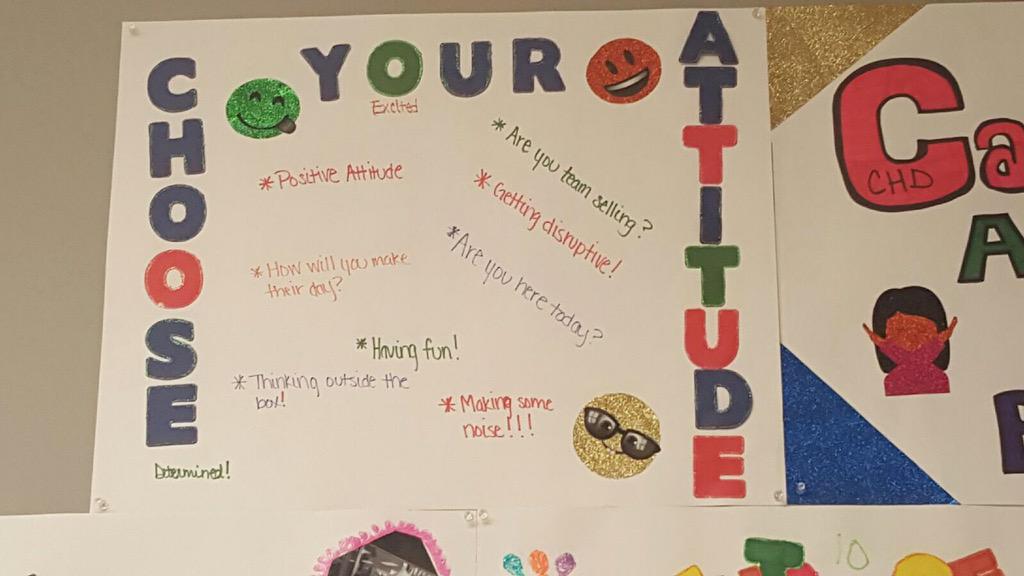 CHOOSE
YOUR
ATTITUDE
Excited
*Positive Attitude
*Are you team selling?
*Getting disruptive!
*Are you here today?
*How will you make
their day?
*Having fun!
*Thinking outside the
box!
*Making some
noise!!!
Determined!
Ca
CHD
A
10